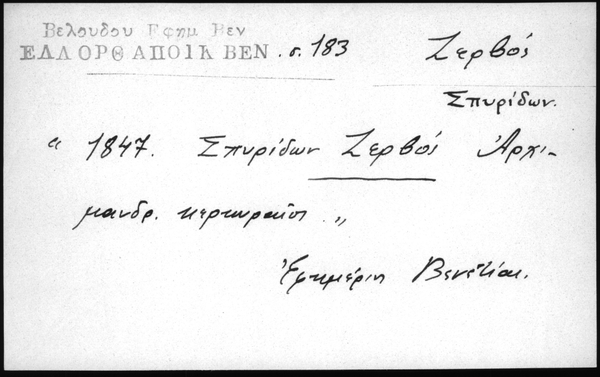 Βελουδου Εφημ Βεν
ΕΛΛ ΟΡΘ ΑΠΟΙΚ ΒΕΝ . σ. 183
Ζερβός
Σπυρίδων.
“ 1847. Σπυρίδων Ζερβός Ἀρχι-
μανδρ. κερκυραῖος „
Ἐφημέριος Βενετίας.